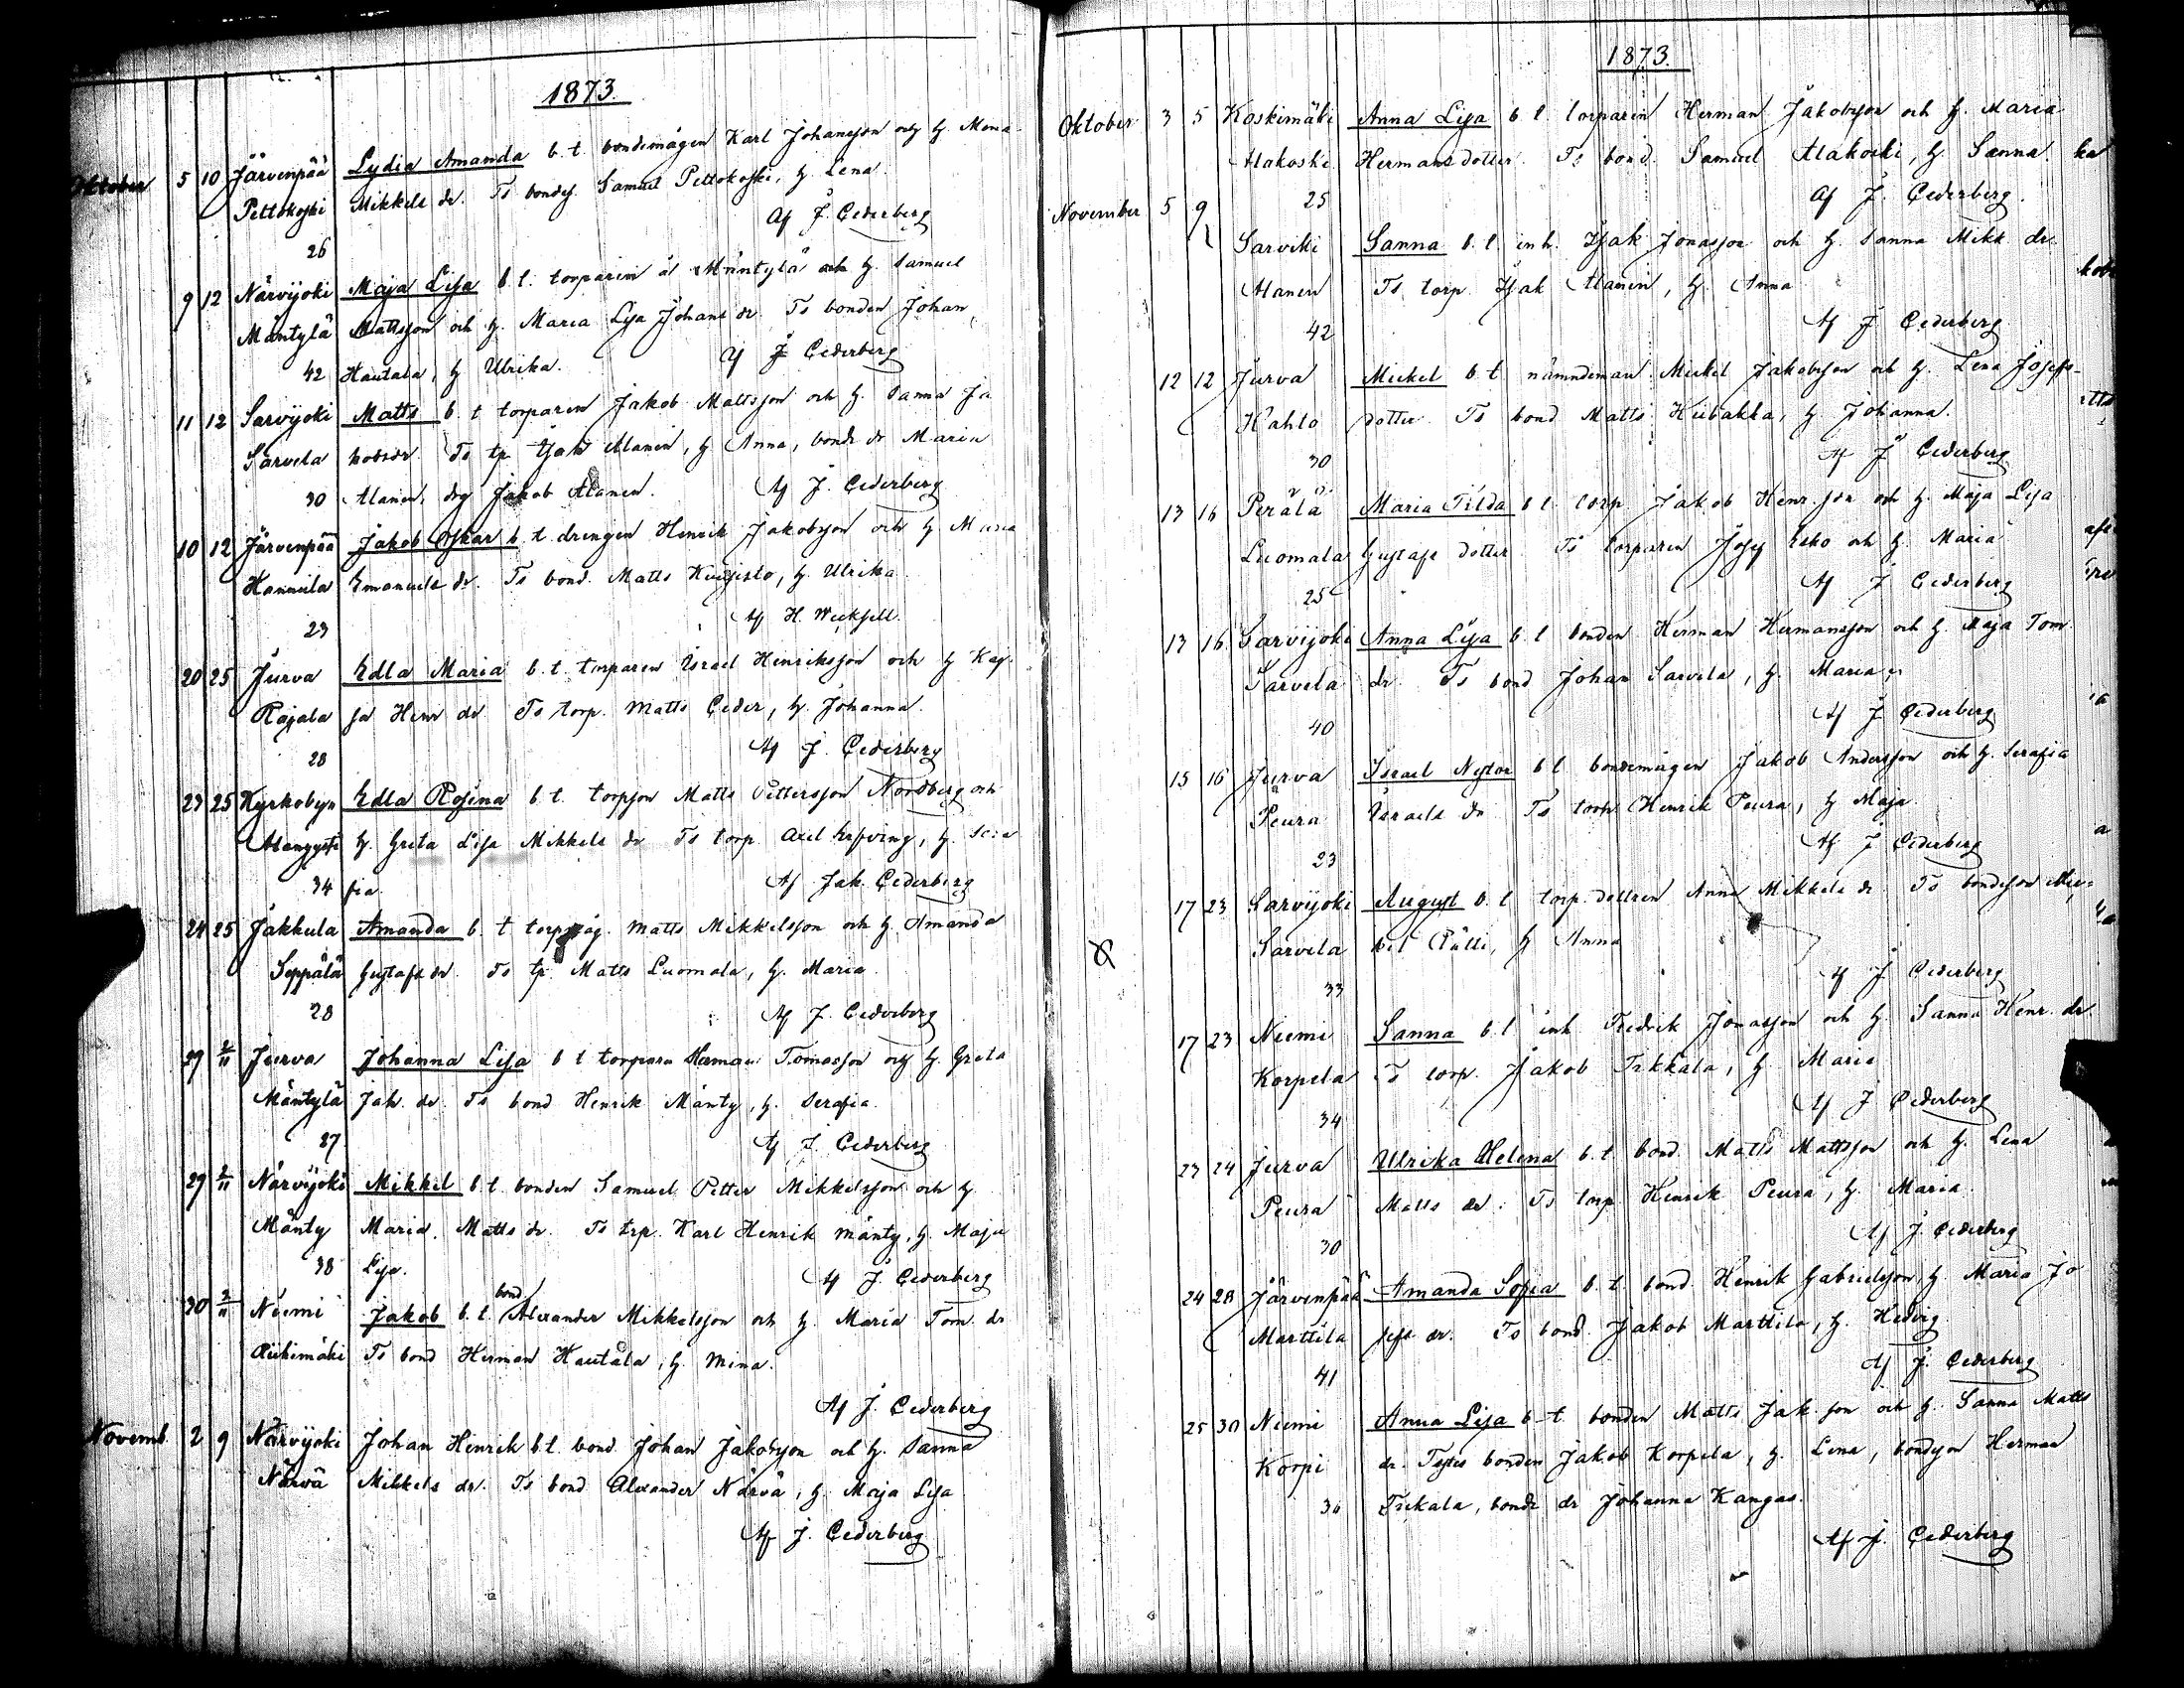 1873.
Oktober 5 10 Järvenpää Lydia Amanda b. t. bondemågen Karl Johansson och h. Mona
Pettokoski Mikkels dr. Ts bondes. Samuel Pettokoski, h. Lena.
26 Af J. Cederberg
9 12 Närvijoki Maja Lisa b. t. torparen å Mäntylä och h. Samuel
Mäntylä Mattsson och h. Maria Lisa Johans dr. Ts bonden Johan
42 Hautala, h. Ulrika. Af J. Cederberg
11 12 Sarvijoki Matts b. t. torparen Jakob Mattsson och h. Sanna Ja
Sarvela kobsdr. Ts tp. Isak Alanen, h. Anna, bonde dr Maria
30 Alanen, drg Jakob Alanen. Af J. Cederberg
10 12 Järvenpää Jakob Oskar b. t. drengen Henrik Jakobsson och h. Maria
Hannula Emanuels dr. Ts bond. Matts Kuusisto, h. Ulrika.
23 Af H. Wecksell.
20 25 Jurva Edla Maria b. t. torparen Israel Henriksson och h. Kaj
Rajala sa Henr dr Ts torp. Matts Ceder, h. Johanna.
28 Af J. Cederberg
23 25 Kyrkobyn Edla Rosina b. t. torpson Matts Pettersson Nordberg och
h. Greta Lisa Mikkels dr Ts torp. Axel h.
34 fia Af Jak. Cederberg
24 25 Jakkula Amanda b. t. Matts Mikkelsson och h. Amanda
Seppälä Gustafs dr. Ts tp. Matts Luomala, h. Maria
28 Af J. Cederberg
29 2/11 Jurva Johanna Lisa b. t. torparen Herman Tomasson och h. Greta
Mäntylä Jak. dr. Ts bond Henrik Mänty, h. Serafia.
27 Af J. Cederberg
29 2/11 Närvijoki Mikkel b. t. bonden Samuel Petter Mikkelsson och h.
Mänty Maria Matts dr. Ts trp. Karl Henrik Mänty, h. Maja
38 Lisa. Af J. Cederberg
30 2/11 Niemi Jakob b. t. bond Alexander Mikkelsson och h. Maria Tom. dr
Riihimäki Ts bond Herman Hautala, h. Mina.
Af J. Cederberg
Novemb. 2 9 Närvijoki Johan Henrik b. t. bond Johan Jakobsson och h. Sanna
Närvä Mikkels dr. Ts bond Alexander Närvä, h. Maja Lisa
Af J. Cederberg
1873.
Oktober 3 5 Koskimäki Anna Lisa b. t. torparen Herman Jakobsson och h. Maria
Alakoski Hermans dotter. Ts bond. Samuel Alakoski, h. Sanna.
25 Af J. Cederberg.
November 5 9
Sarviki Sanna b. t. inh. Isak Jonasson och h. Sanna Mikk. dr.
Alanen Ts torp. Isak Alanen, h. Anna
42 Af J. Cederberg
12 12 Jurva Mickel b. t. nämndeman Mickel Jakobsson och h. Lena Josefs-
Kahlo dotter. Ts bond Matts Kiibakka, h. Johanna.
30 Af J. Cederberg
13 16 Perälä Maria Tilda b. t. torp. Jakob Henr. son och h. Maja Lisa
Luomala Gustafs dotter Ts torparen Josef Esko och h. Maria
25 Af J. Cederberg
13 16 Sarvijoki Anna Lisa b. t. bonden Herman Hermansson och h. Maja Tom
Sarvela dr. Ts bond Johan Sarvela, h. Maria
40 Af J. Cederberg
15 16 Jurva Israel Nestor b. t. bondemågen Jakob Andersson och h. Serafia
Peura Israels dr. Ts torp. Henrik Peura, h. Maja
23 Af J. Cederberg
17 23 Sarvijoki August b. t. torp. dottren Anna Mikkels dr. Ts bondeson Mic-
Sarvela kel Pätti, h. Anna
33 Af J. Cederberg
17 23 Niemi Sanna b. t. inh. Fredrik Jonasson och h. Sanna Henr. dr
Korpela Ts torp. Jakob Tikkala, h. Maria
34 Af J. Cederberg
23 24 Jurva Ulrika Helena b. t. bond. Matts Mattsson och h. Lena
Peura Matts dr. Ts torp Henrik Peura, h. Maria.
30 Af J. Cederberg
24 28 Järvenpää Amanda Sofia b. t. bond Henrik Gabrielsson, h. Maria Jo
Marttila sefs dr. Ts bond. Jakob Marttila, h. Hedvig
41 Af J. Cederberg
25 30 Niemi Anna Lisa b. t. bonden Matts Jak. son och h. Sanna Matts
Korpi dr. Testes bonden Jakob Korpela, h. Lena, bondson Herman
30 Tiikala, bonde dr Johanna Kangas.
Af J. Cederberg